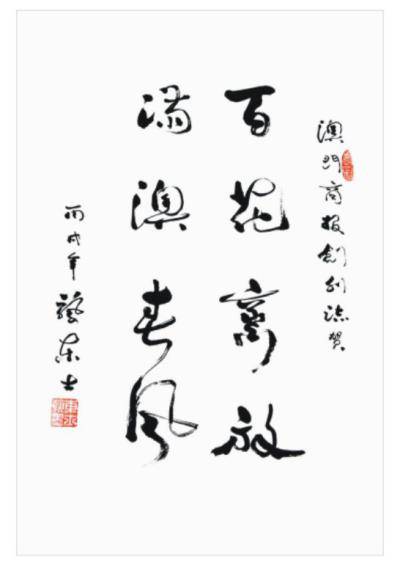 澳門商報創刊誌賀
百花齊放
滿澳春風
丙戌年 藝東士